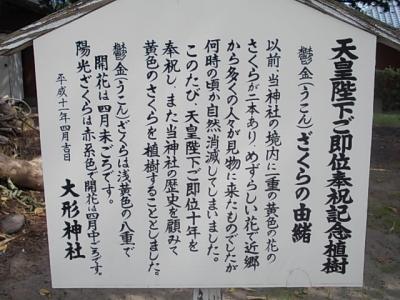 天皇陛下ご即位奉祝記念植樹
鬱金(うこん)ざくらの由緒
以前、当神社の境内に一重の黄色の花の
さくらが一本あり、めずらしい花で近郷
から多くの人々が見物に来たものでしたが
何時の頃か自然消滅してしまいました。
このたび、天皇陛下ご即位十年を
奉祝し、また当神社の歴史を顧みて
黄色のさくらを植樹することとしました。
鬱金(うこん)ざくらは浅黄色の八重で
開花は四月末ごろです。
陽光ざくらは赤系色で開花は四月中ごろです。
平成十一年四月吉日
大形神社